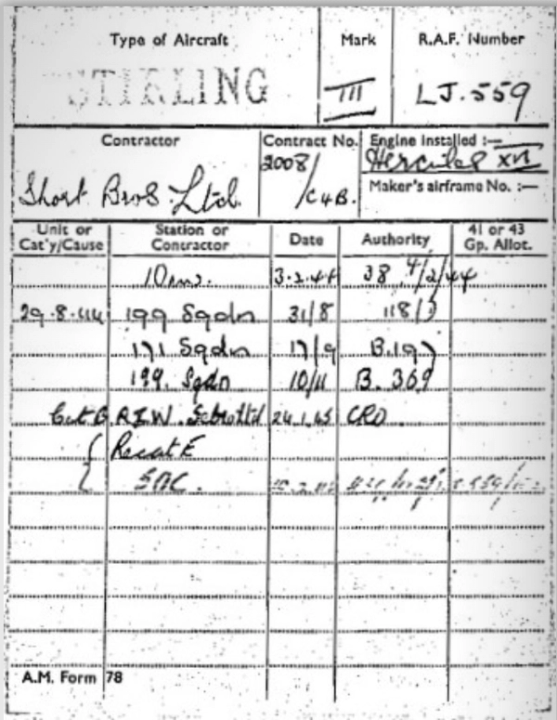 Type of Aircraft Mark R.A.F. Number
STIRLING III LJ.559
Contractor Contract No. Engine installed :—
Short Bros Ltd. 2008/C4B. Hercules XVI
Maker's airframe No. :—
Unit or Cat'y/Cause Station or Contractor Date Authority 41 or 43 Gp. Allot.
10 3.2.44 38 4/2/44
29.8.44 199 Sqdn 31/8 118/
171 Sqdn 17/9 B.197
199. Sqdn 10/11 B. 369
Cat B R.I.W. Sebro Ltd 24.1.45 CRO
Recat E
A.M. Form 78